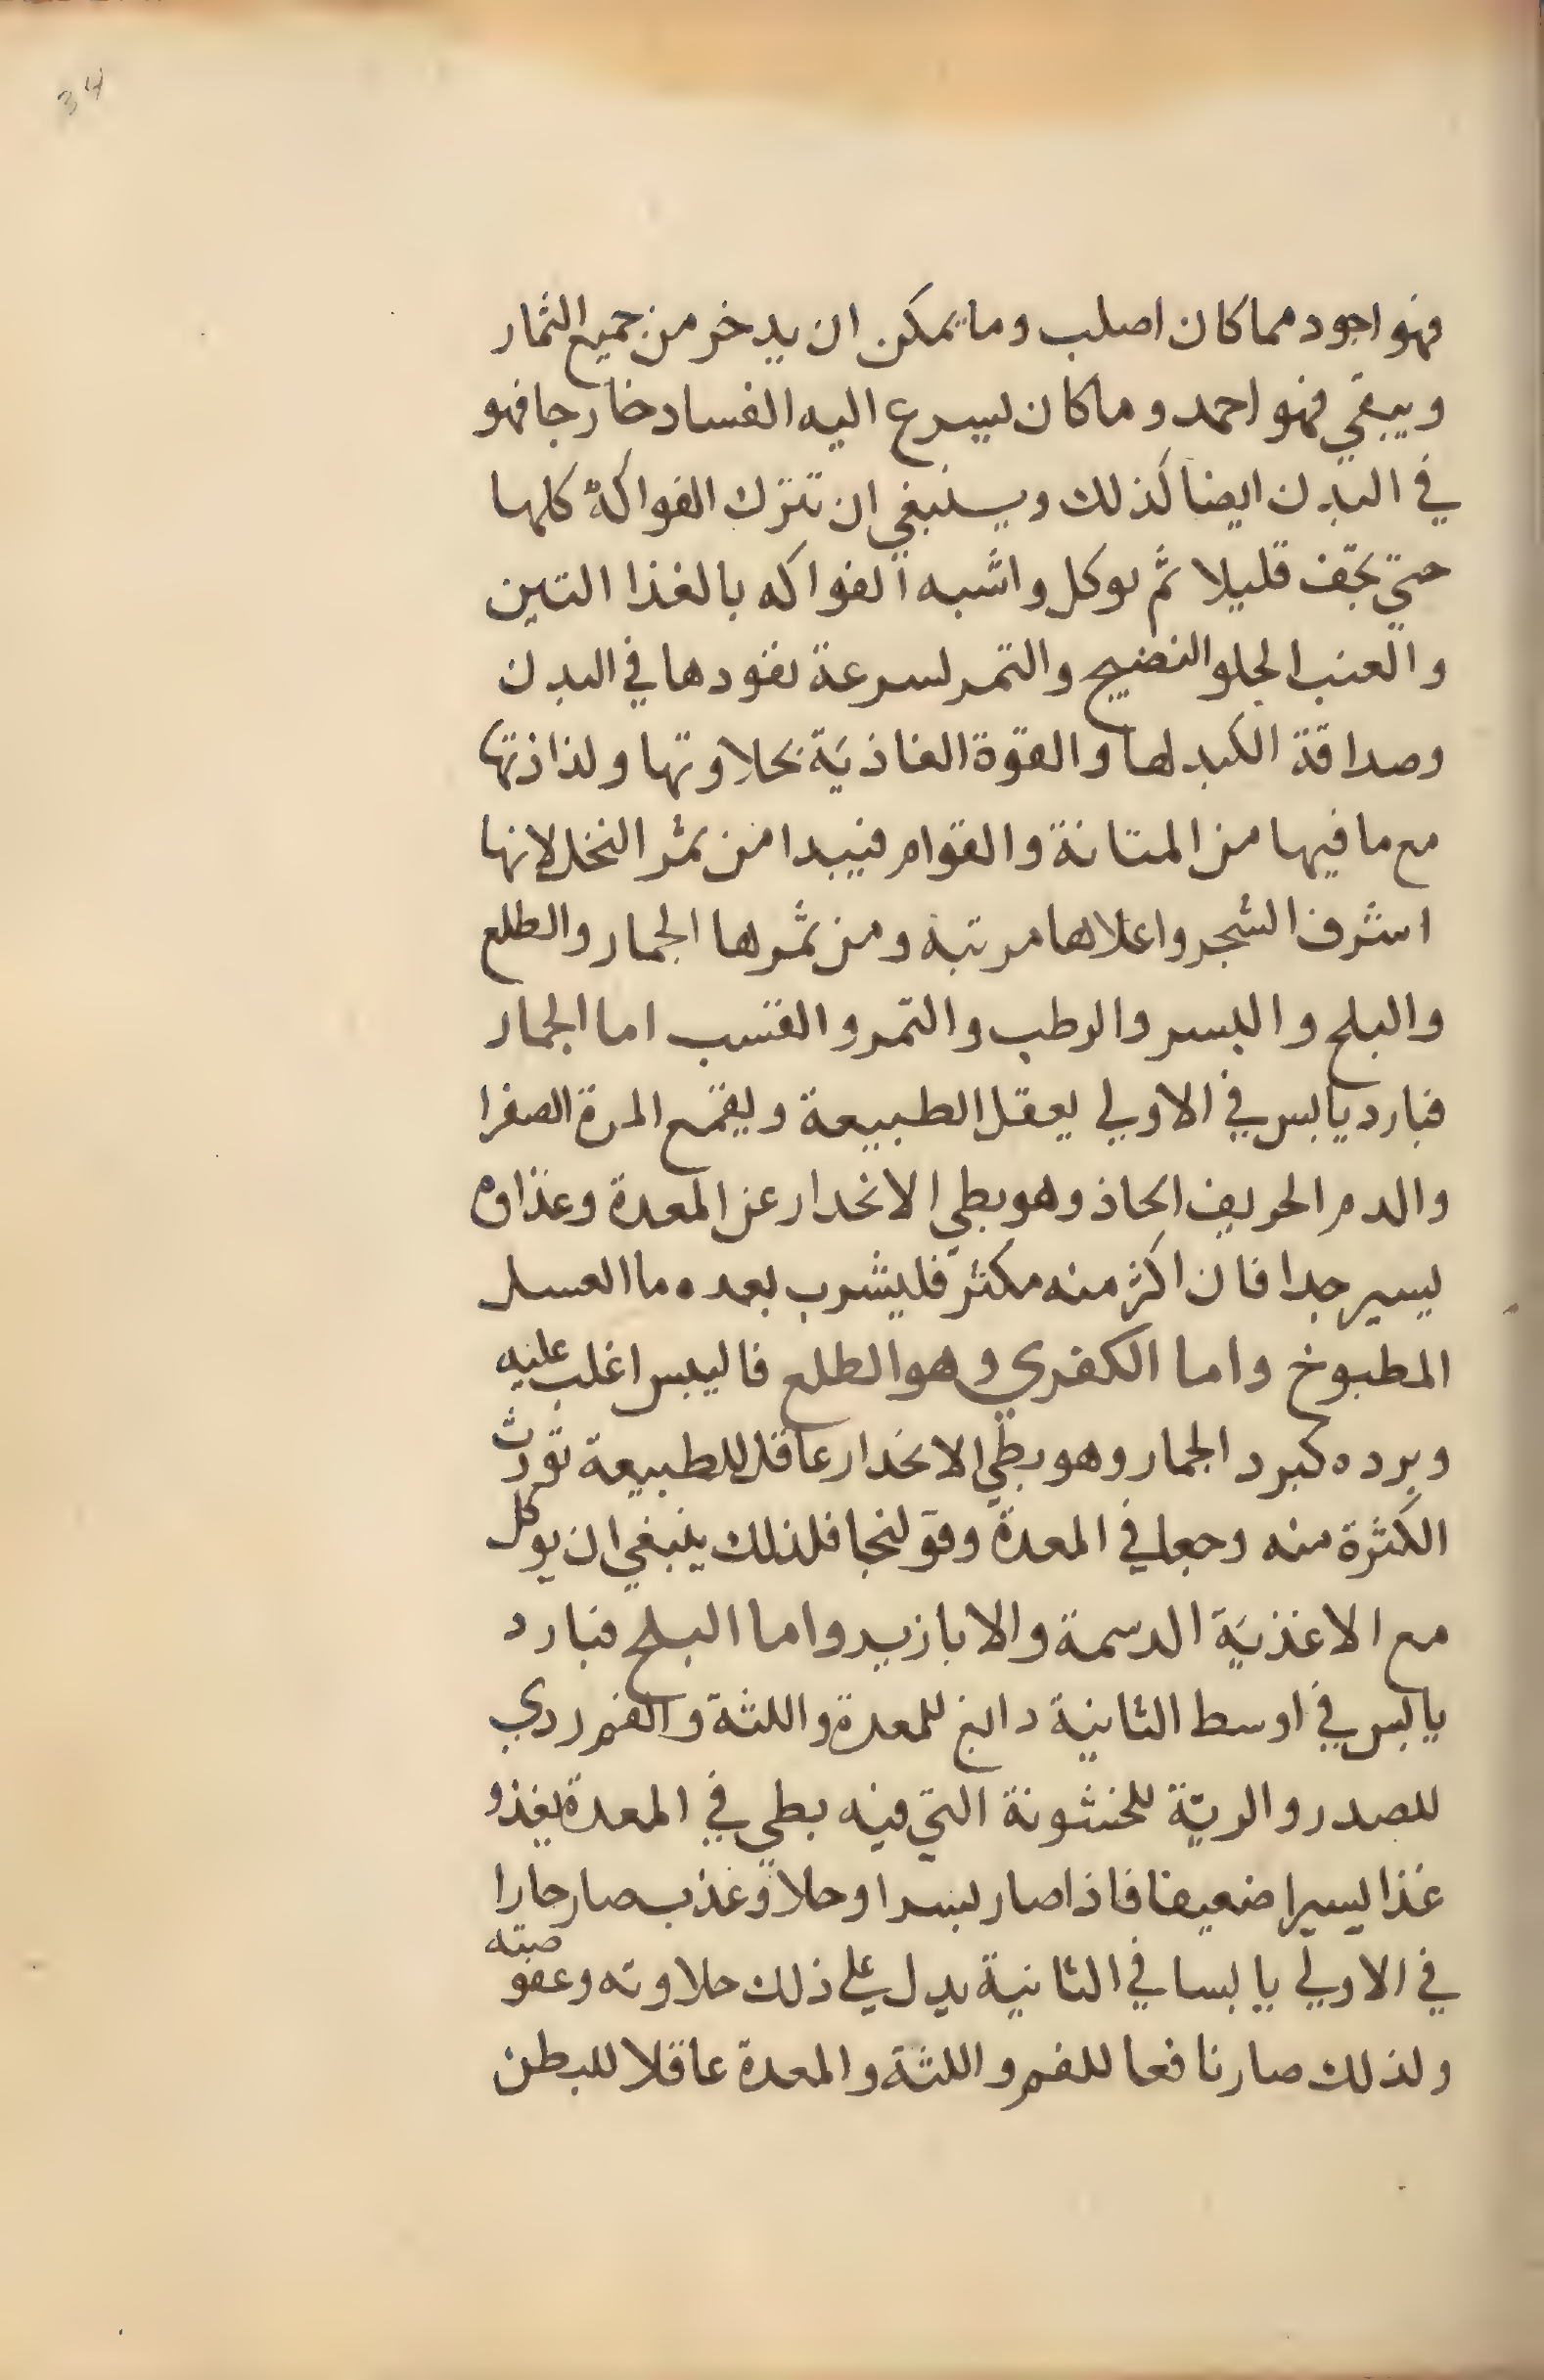 34
فهو اجود مما كان اصلب وما يمكن ان يدخر من جميع الثمار
ويبقي فهو احمد وما كان ليسرع اليه الفساد خارجا فهو
في البدن ايضا كذلك وينبغي ان تترك الفواكه كلها
حتي تجف قليلا ثم توكل واشبه الفواكه بالغذا التين
والعنب الحلو النضيج والتمر لسرعة نفودها في البدن
وصداقة الكبد لها والقوة الغاذية بحلاوتها ولذاذتها
مع ما فيها من المتانة والقوام فنبدا من ثمر النخل لانها
اشرف الشجر واعلاها مرتبة ومن ثمرها الجمار والطلع
والبلح والبسر والرطب والتمر والقسب اما الجمار
فبارد يابس في الاولي يعقل الطبيعة ويقمع المرة الصفرا
والدم الحريف الحاذ وهو بطي الانحدار عن المعدة وغذاوه
يسير جدا فان اكثر منه مكثر فليشرب بعده ما العسل
المطبوخ واما الكفري وهو الطلع فاليبس اغلب عليه
وبرده كبرد الجمار وهو بطي الانحدار عاقل للطبيعة تورث
الكثرة منه وجعا في المعدة وقولنجا فلذلك ينبغي ان يوكل
مع الاغذية الدسمة والابازير واما البلح فبارد
يابس في اوسط الثانية دابغ للمعدة واللثة والفم ردي
للصدر والرية للخشونة التي فيه بطي في المعدة يغذو
غذا يسيرا ضعيفا فاذا صار بسرا وحلا وعذب صار حارا
في الاولي يابسا في الثانية يدل علي ذلك حلاوته وعفوصته
ولذلك صار نافعا للفم واللثة والمعدة عاقلا للبطن